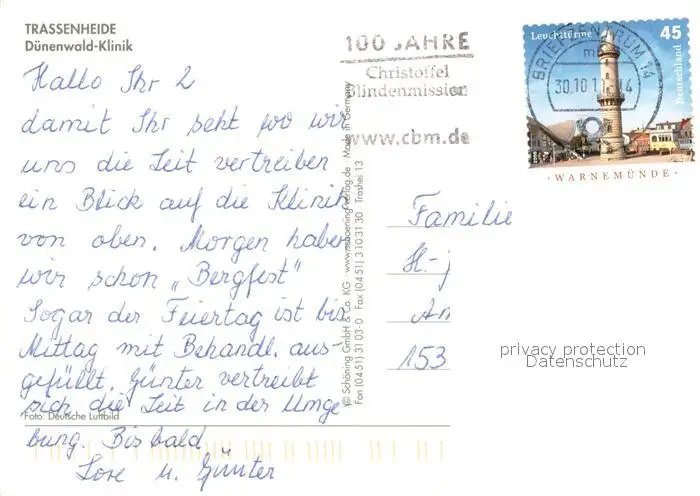 TRASSENHEIDE
Dünenwald-Klinik
Hallo Ihr 2
damit Ihr seht wo wir
uns die Zeit vertreiben
ein Blick auf die Klinik
von oben. Morgen haben
wir schon „Bergfest"
Sogar der Feiertag ist bis
Mittag mit Behandl. aus-
gefüllt. Günter vertreibt
sich die Zeit in der Umge
bung. Bis bald.
Lore u. Günter
Foto: Deutsche Luftbild
© Schöning GmbH & Co. KG · www.schoening-verlag.de · Made in Germany
Fon (04 51) 3 10 3-0 Fax (04 51) 3 10 31 30 Trashei 13
100 JAHRE
Christoffel
Blindenmission
www.cbm.de
BRIEFZENTRUM 14
30.10.1
14
Leuchttürme
45
Deutschland
WARNEMÜNDE
Familie
H.-j
An
153
privacy protection
Datenschutz